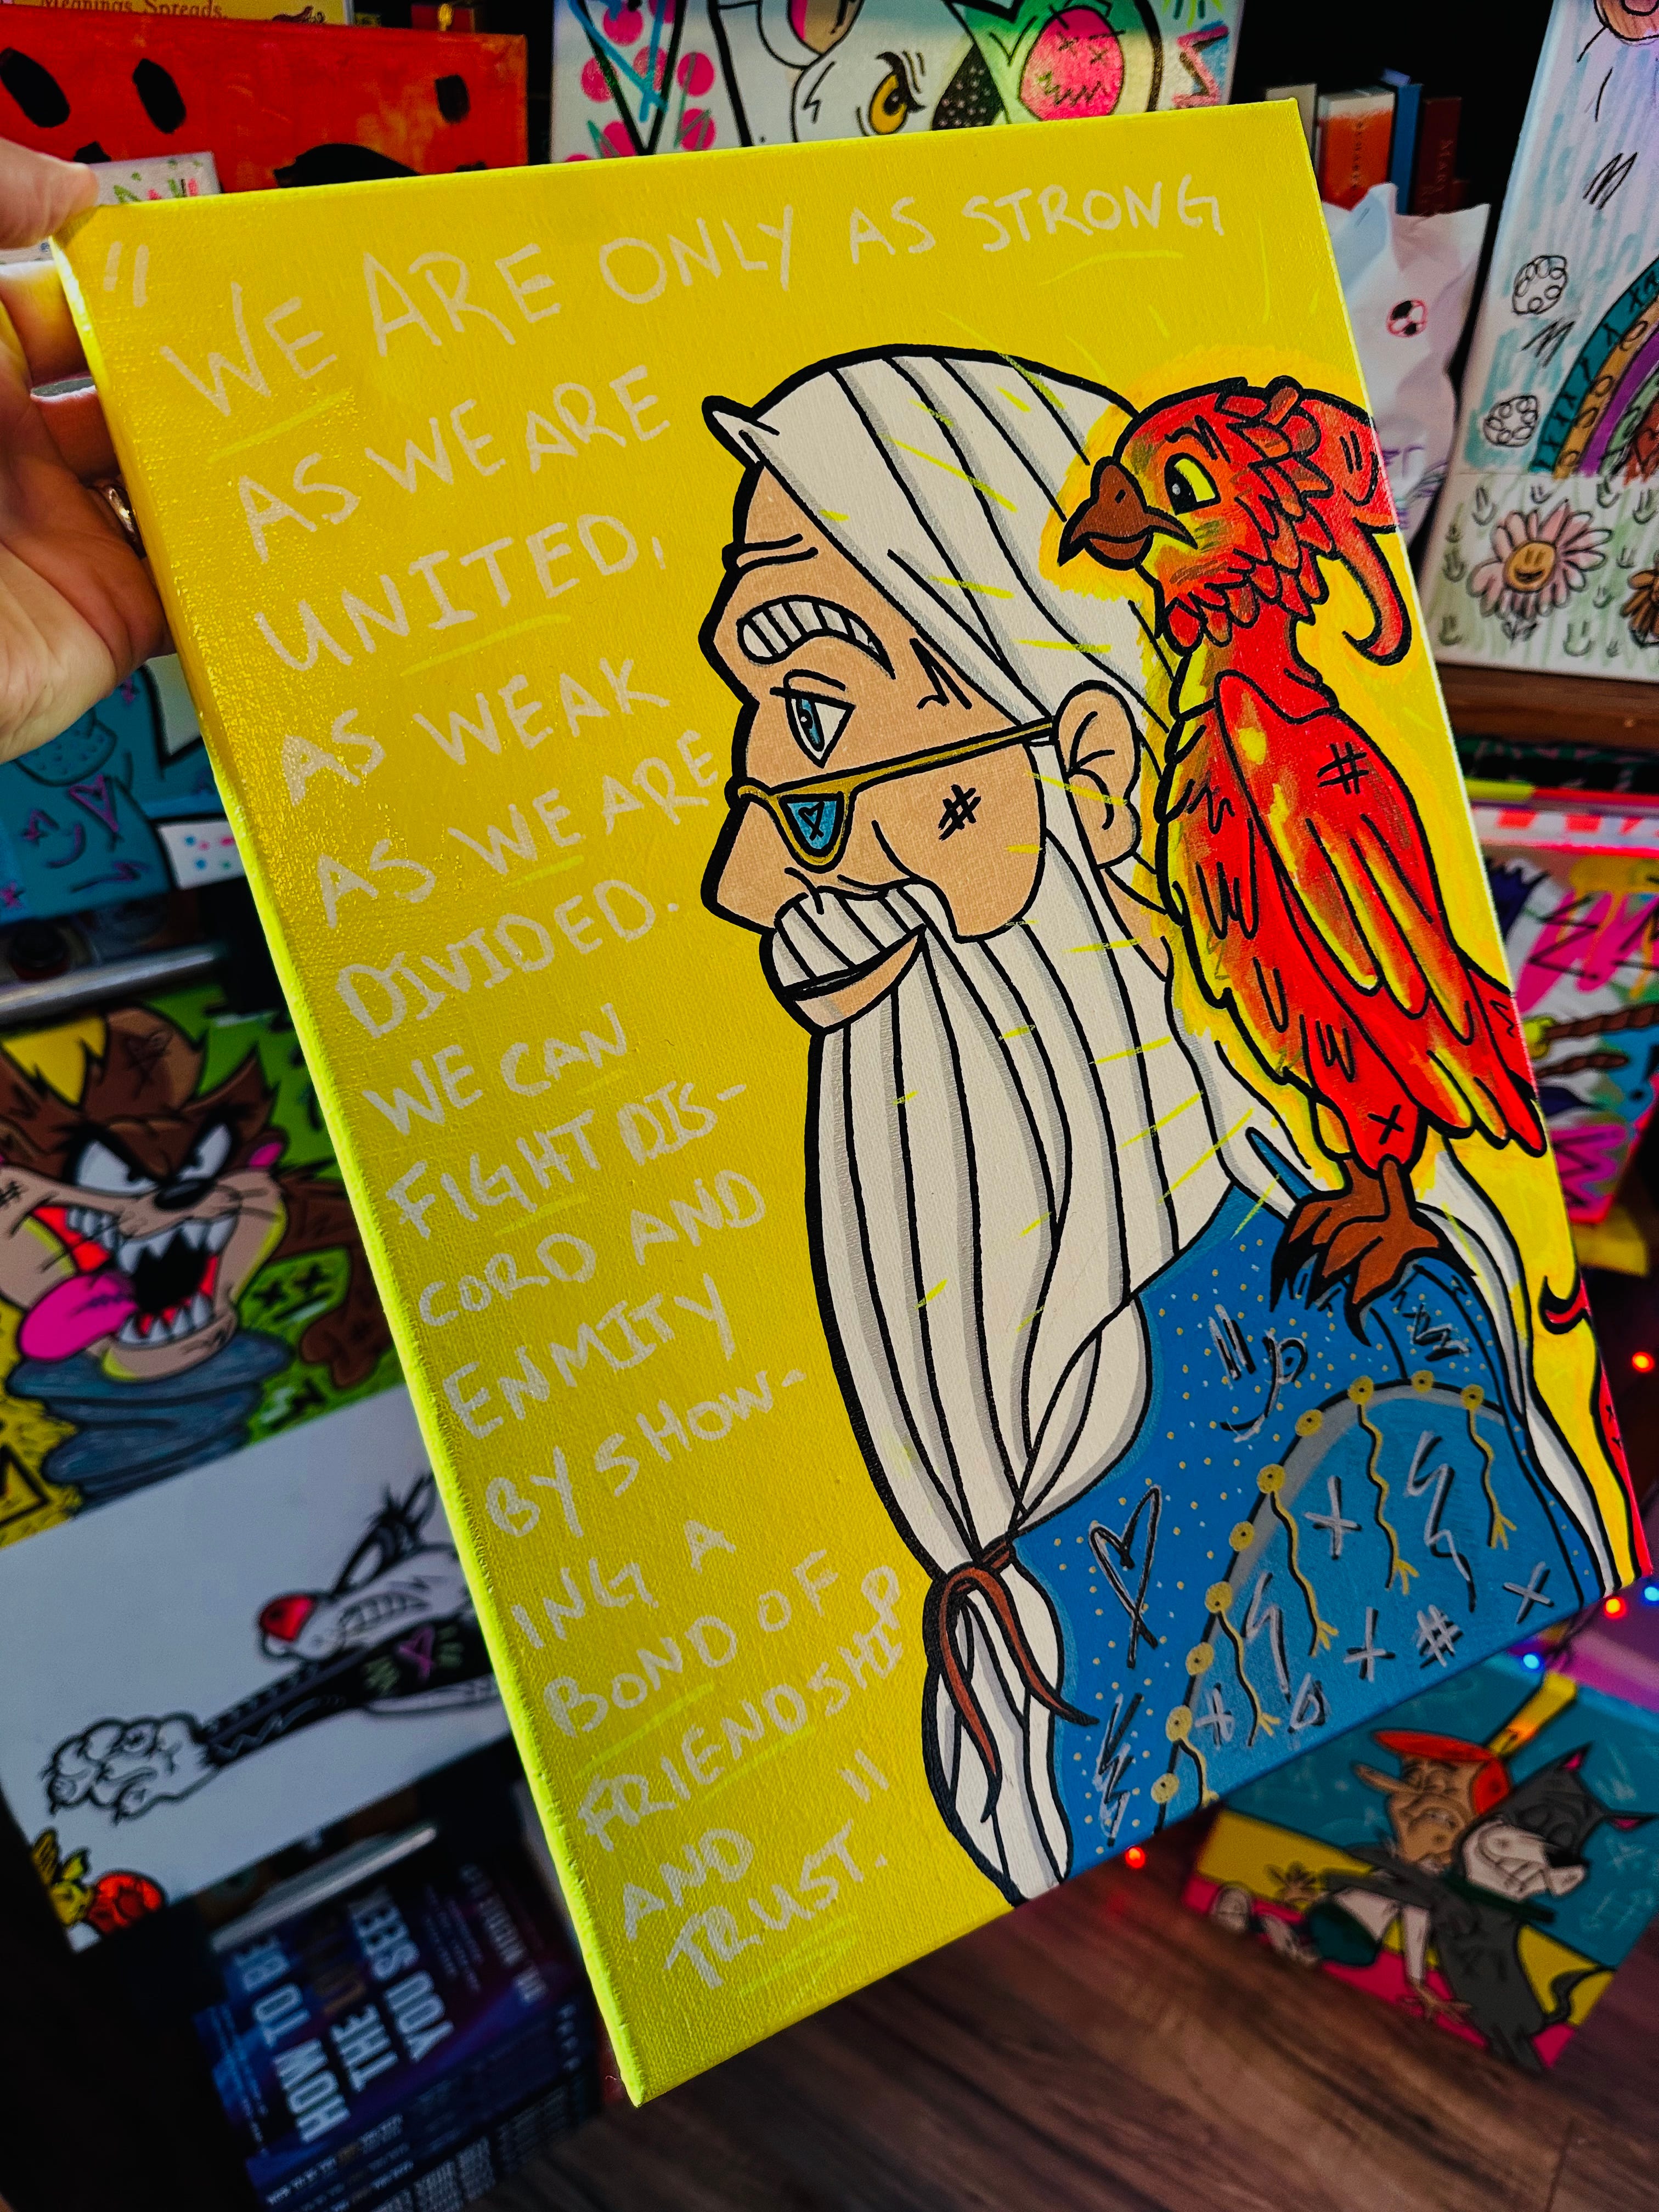 Meanings, Spreads,
" WE ARE ONLY AS STRONG
AS WE ARE
UNITED,
AS WEAK
AS WE ARE
DIVIDED.
WE CAN
FIGHT DIS-
CORD AND
ENMITY
BY SHOW-
ING A
BOND OF
FRIENDSHIP
AND
TRUST. "
HOW TO BE
THE
YOU SEEK